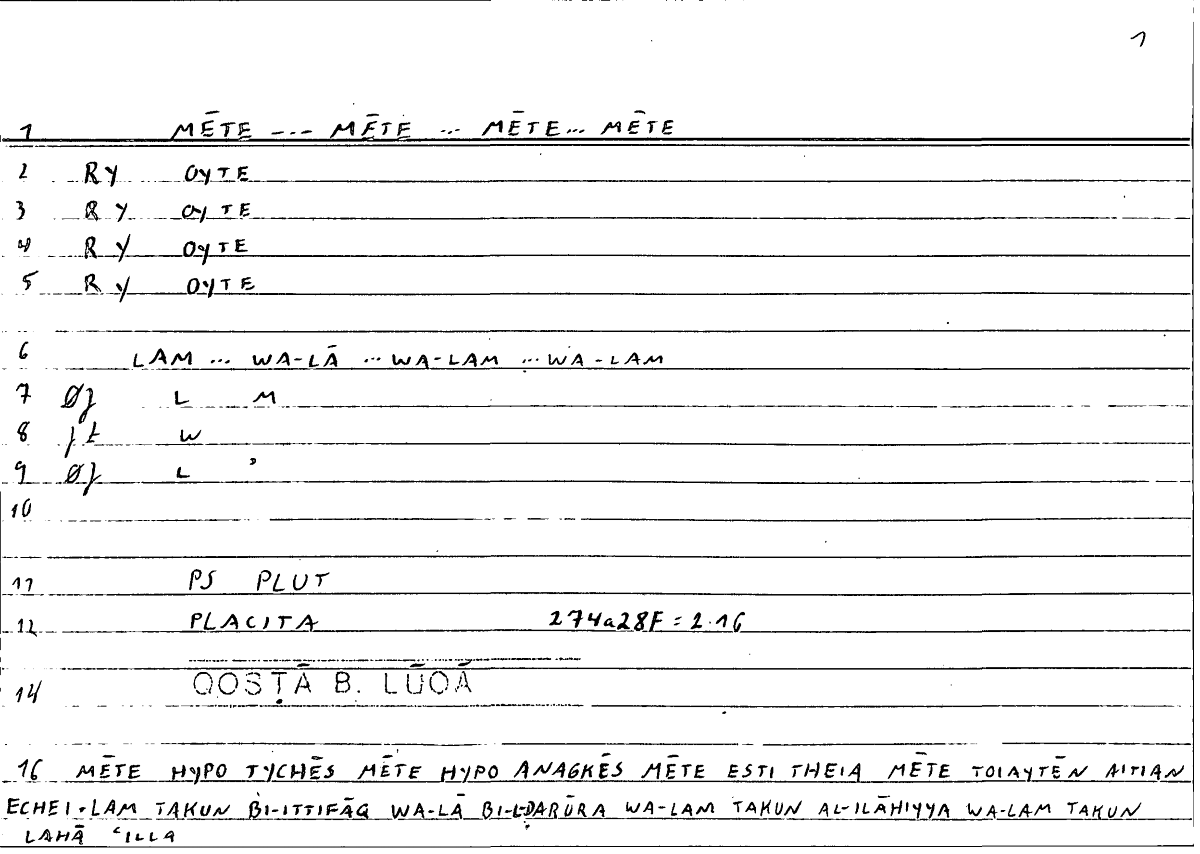 1
1 MĒTE --- MĒTE ... MĒTE... MĒTE
2 RY OYTE
3 RY OYTE
4 RY OYTE
5 RY OYTE
6 LAM ... WA-LĀ ... WA-LAM ... WA-LAM
7 Øf L M
8 ft W
9 Øf L ʾ
10
11 PS PLUT
12 PLACITA 274a28F = 2.16
14 QOSṬĀ B. LŪQĀ
16 MĒTE HYPO TYCHĒS MĒTE HYPO ANAGKĒS MĒTE ESTI THEIA MĒTE TOIAYTĒN AITIAN
ECHEI · LAM TAKUN BI-ITTIFĀQ WA-LĀ BI-L-ḌARŪRA WA-LAM TAKUN AL-ILĀHIYYA WA-LAM TAKUN
LAHĀ ʿILLA